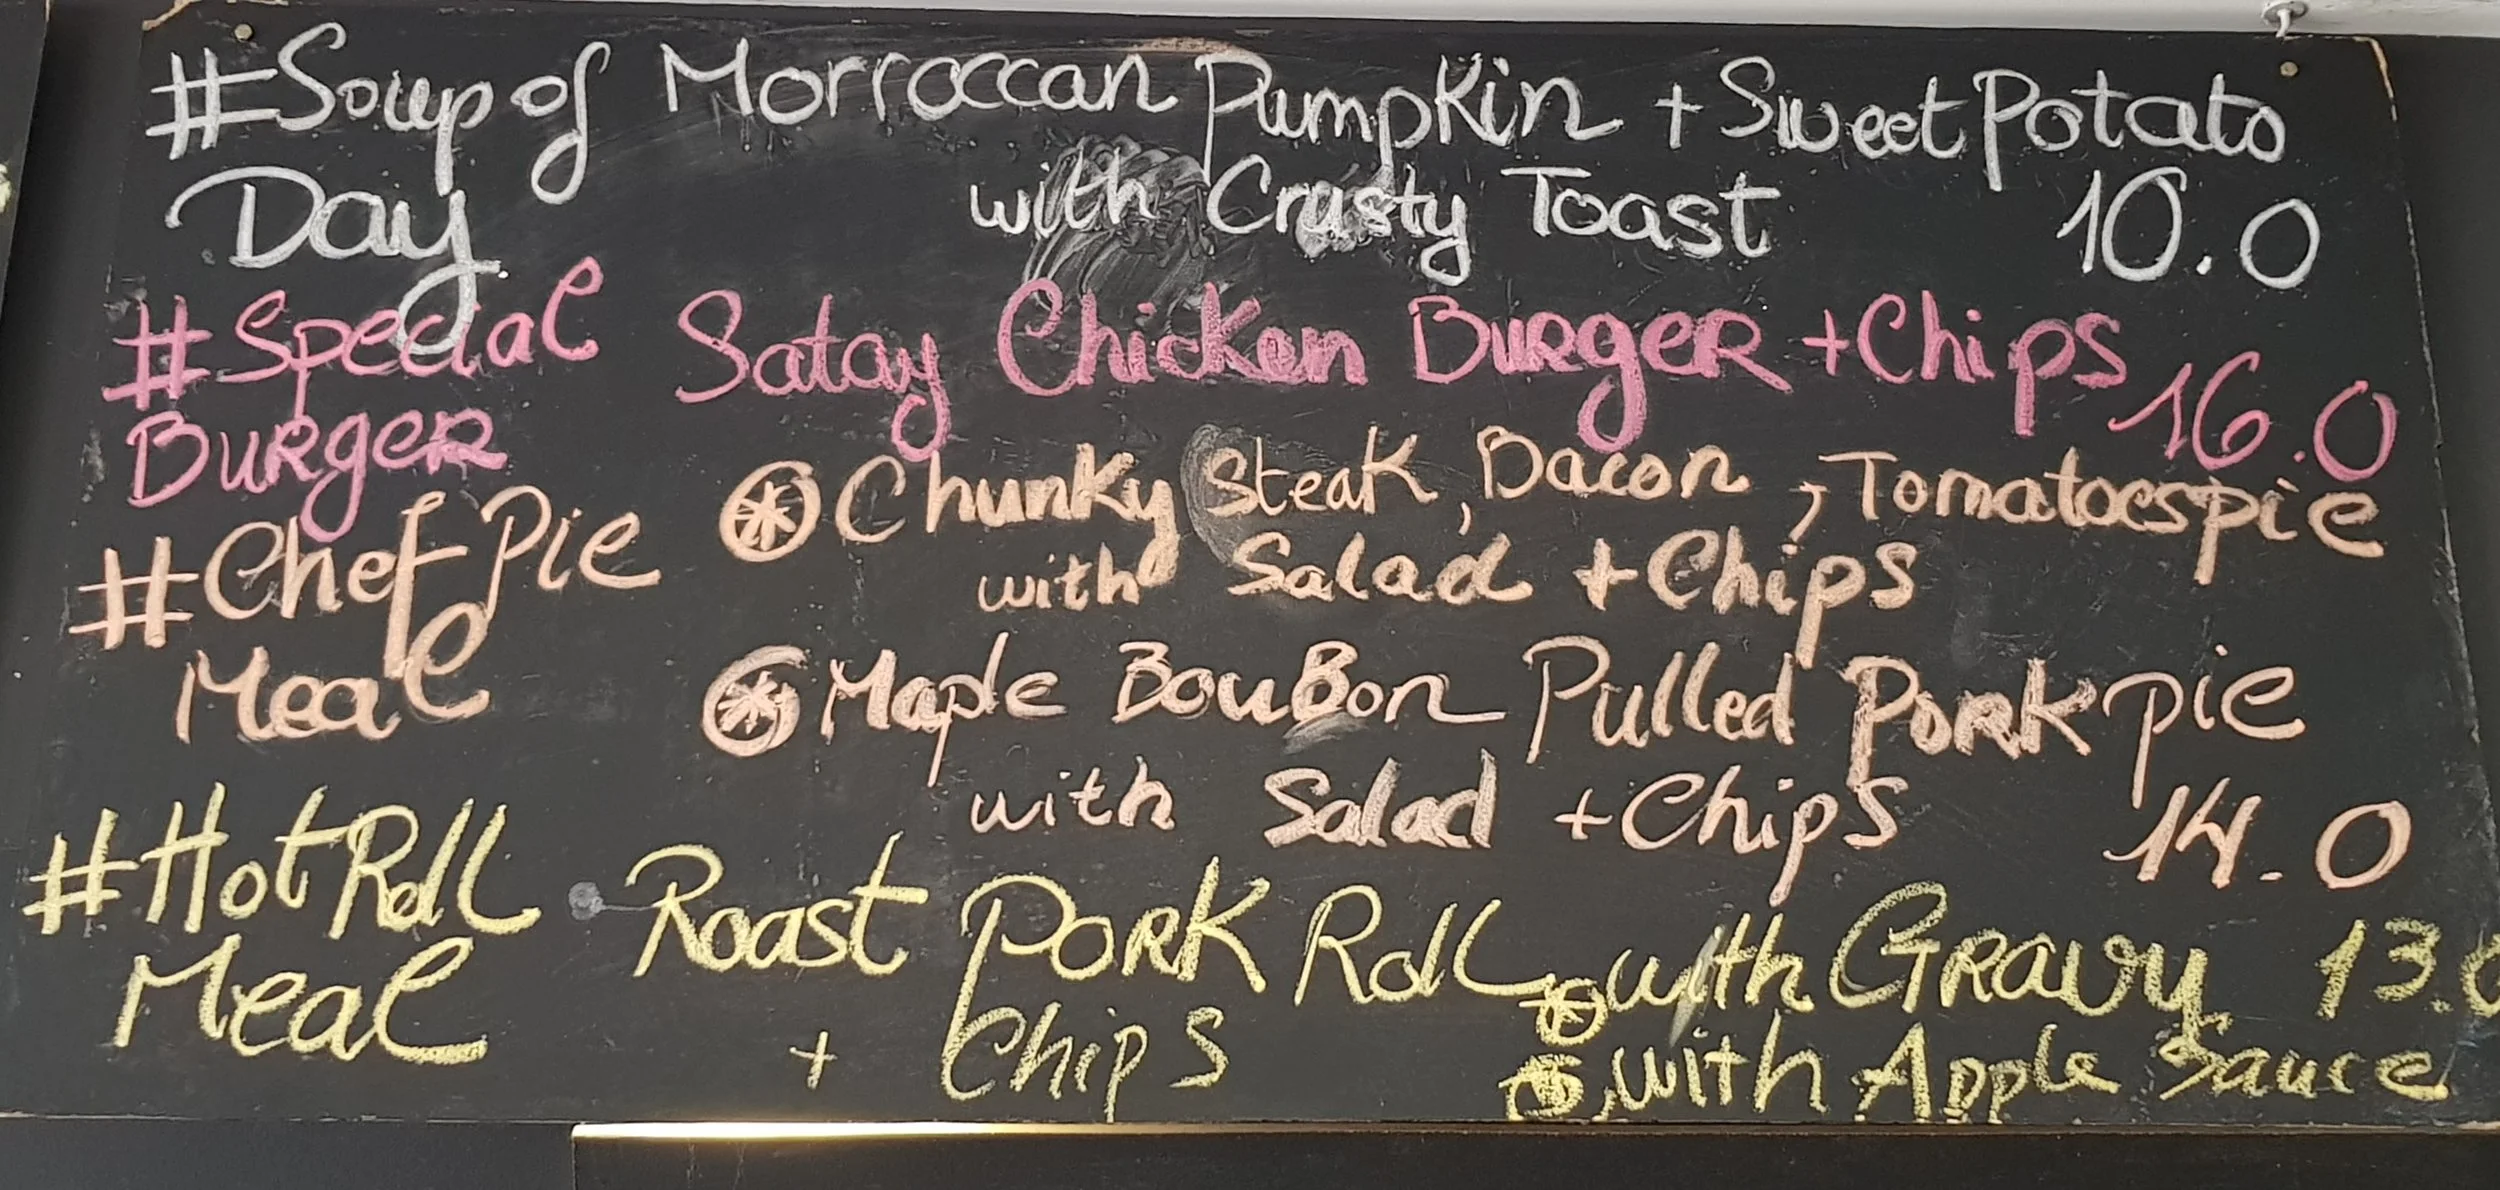 #Soup of Morroccan Pumpkin + Sweet Potato
Day with Crusty Toast 10.0
#Special Satay Chicken Burger + Chips 16.0
Burger
#Chef Pie Chunky Steak, Bacon, Tomatoes pie
with Salad + Chips
Meal Maple BouBon Pulled Pork pie
with Salad + Chips 14.0
#Hot Roll Roast Pork Roll with Gravy 13.0
Meal + Chips with Apple Sauce